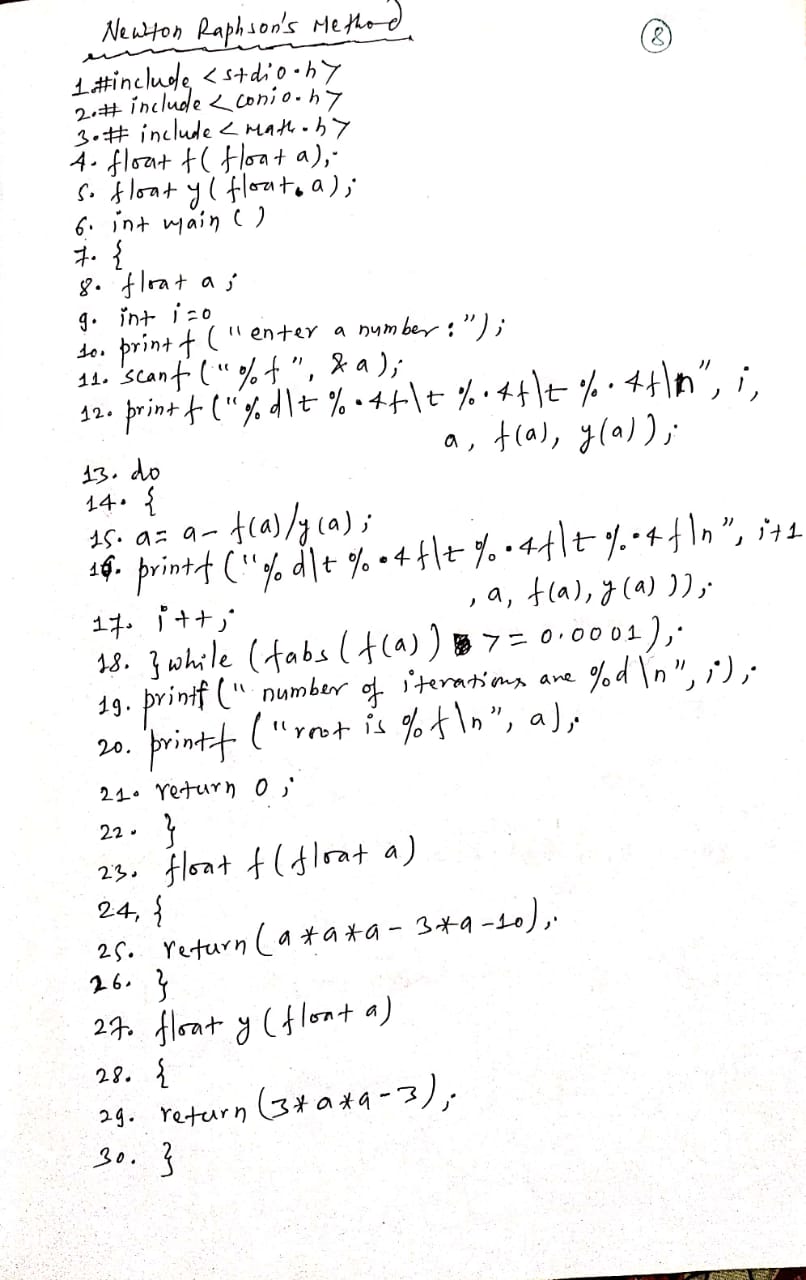 Newton Raphson's Method
8
1. #include <stdio.h>
2. # include <conio.h>
3. # include <math.h>
4. float f( float a);
5. float y( float a);
6. int main ( )
7. {
8. float a;
9. int i=0
10. printf ("enter a number:");
11. scanf ("%f", &a);
12. printf ("%d\t %.4f\t %.4f\t %.4f\n", i,
a, f(a), y(a));
13. do
14. {
15. a= a- f(a)/y(a);
16. printf ("%d\t %.4f\t %.4f\t %.4f\n", i+1
, a, f(a), y(a) ));
17. i++;
18. } while (fabs (f(a)) >= 0.0001);
19. printf (" number of iterations are %d \n", i);
20. printf ("root is %f\n", a);
21. return 0;
22. }
23. float f(float a)
24, {
25. return (a*a*a - 3*a -10);
26. }
27. float y (float a)
28. {
29. return (3*a*a-3);
30. }